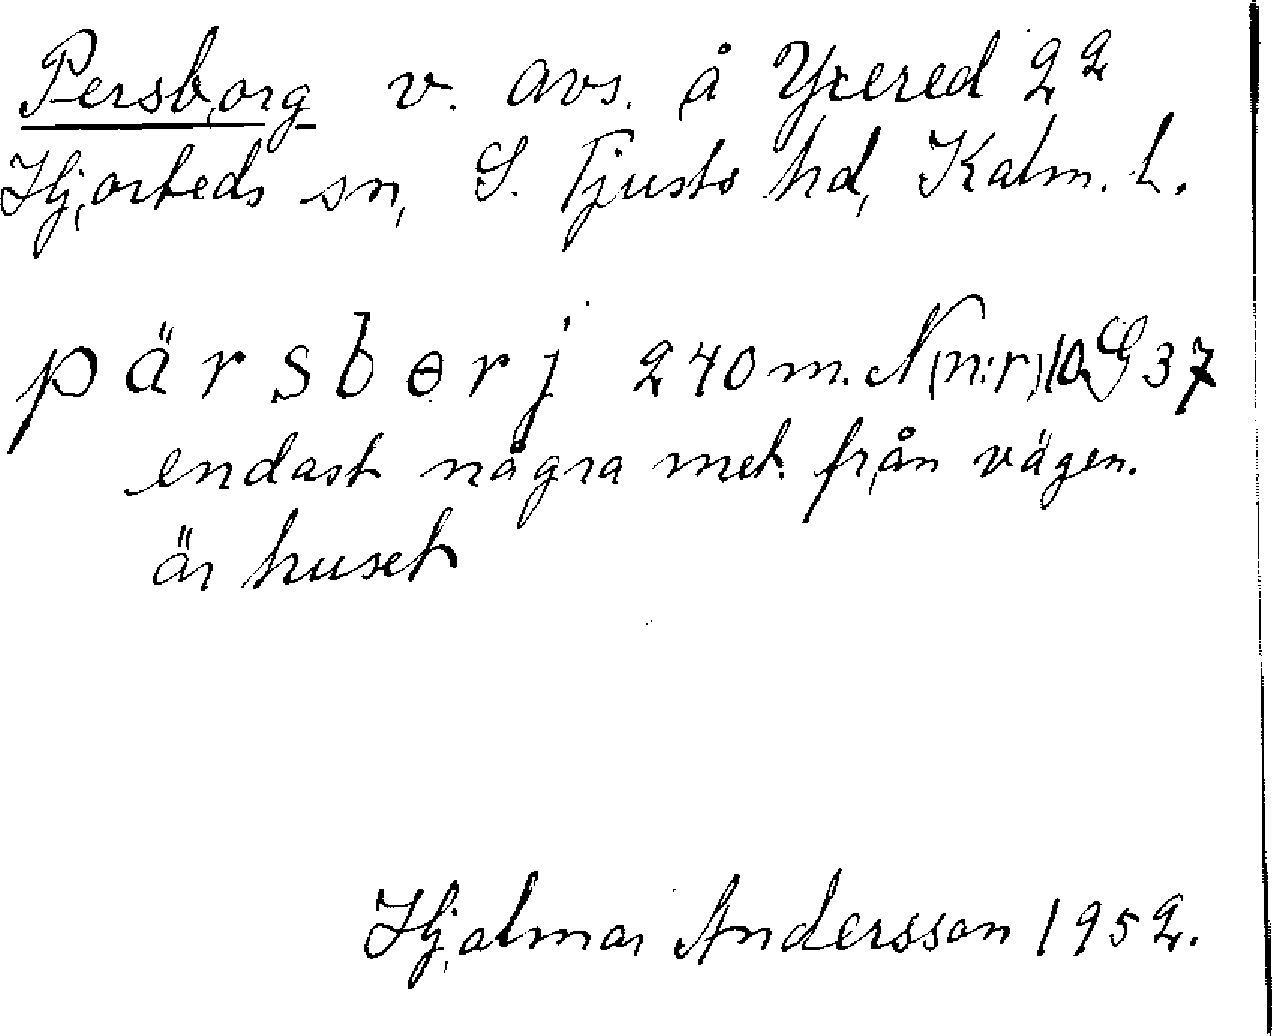 Persborg v. avs. å Yxered 2²
Hjorteds sn, S. Tjusts hd, Kalm. L.
pärsbɵrj 240 m. N (n:r) 10 G 37
endast några met. från vägen.
är huset
Hjalmar Andersson 1952.